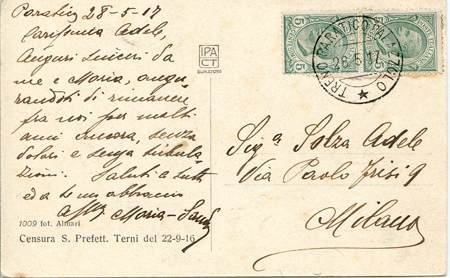 Paratico 28-5-17
Carissima Adele,
Auguri sinceri da
me e Maria, augu
randoti di rimanere
fra noi per molti
anni ancora, senza
dolori e senza tribola
zioni. Saluti a tutti
ed a te un abbraccio
Aff. Maria-
1009 fot. Alinari
Censura S. Prefett. Terni del 22-9-16
IPA
CT
TRENO PARATICO PALAZZOLO
28 5 17
5
5
5
Sigᵃ Solza Adele
Via Paolo Frisi 9
Milano